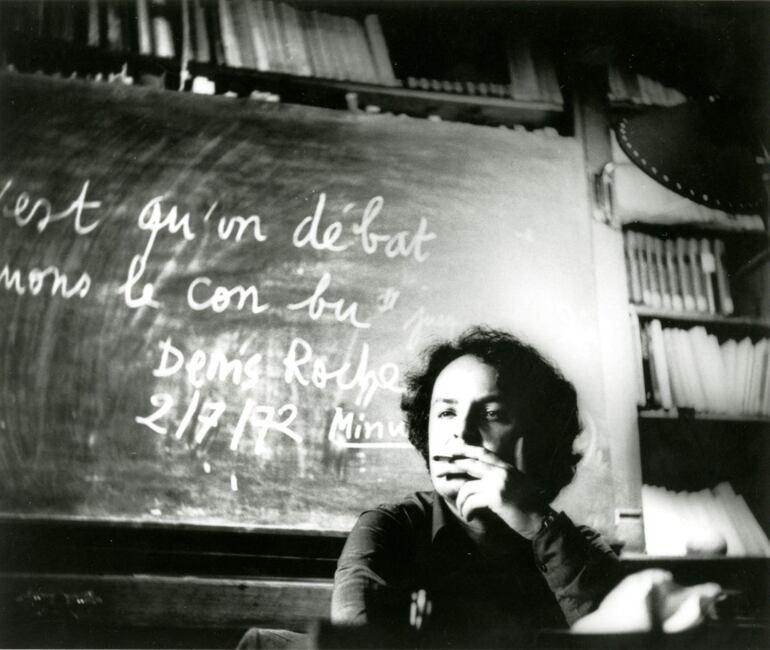 'est qu'un débat
nons le con bu"
Denis Roche
2/7/72 Minu